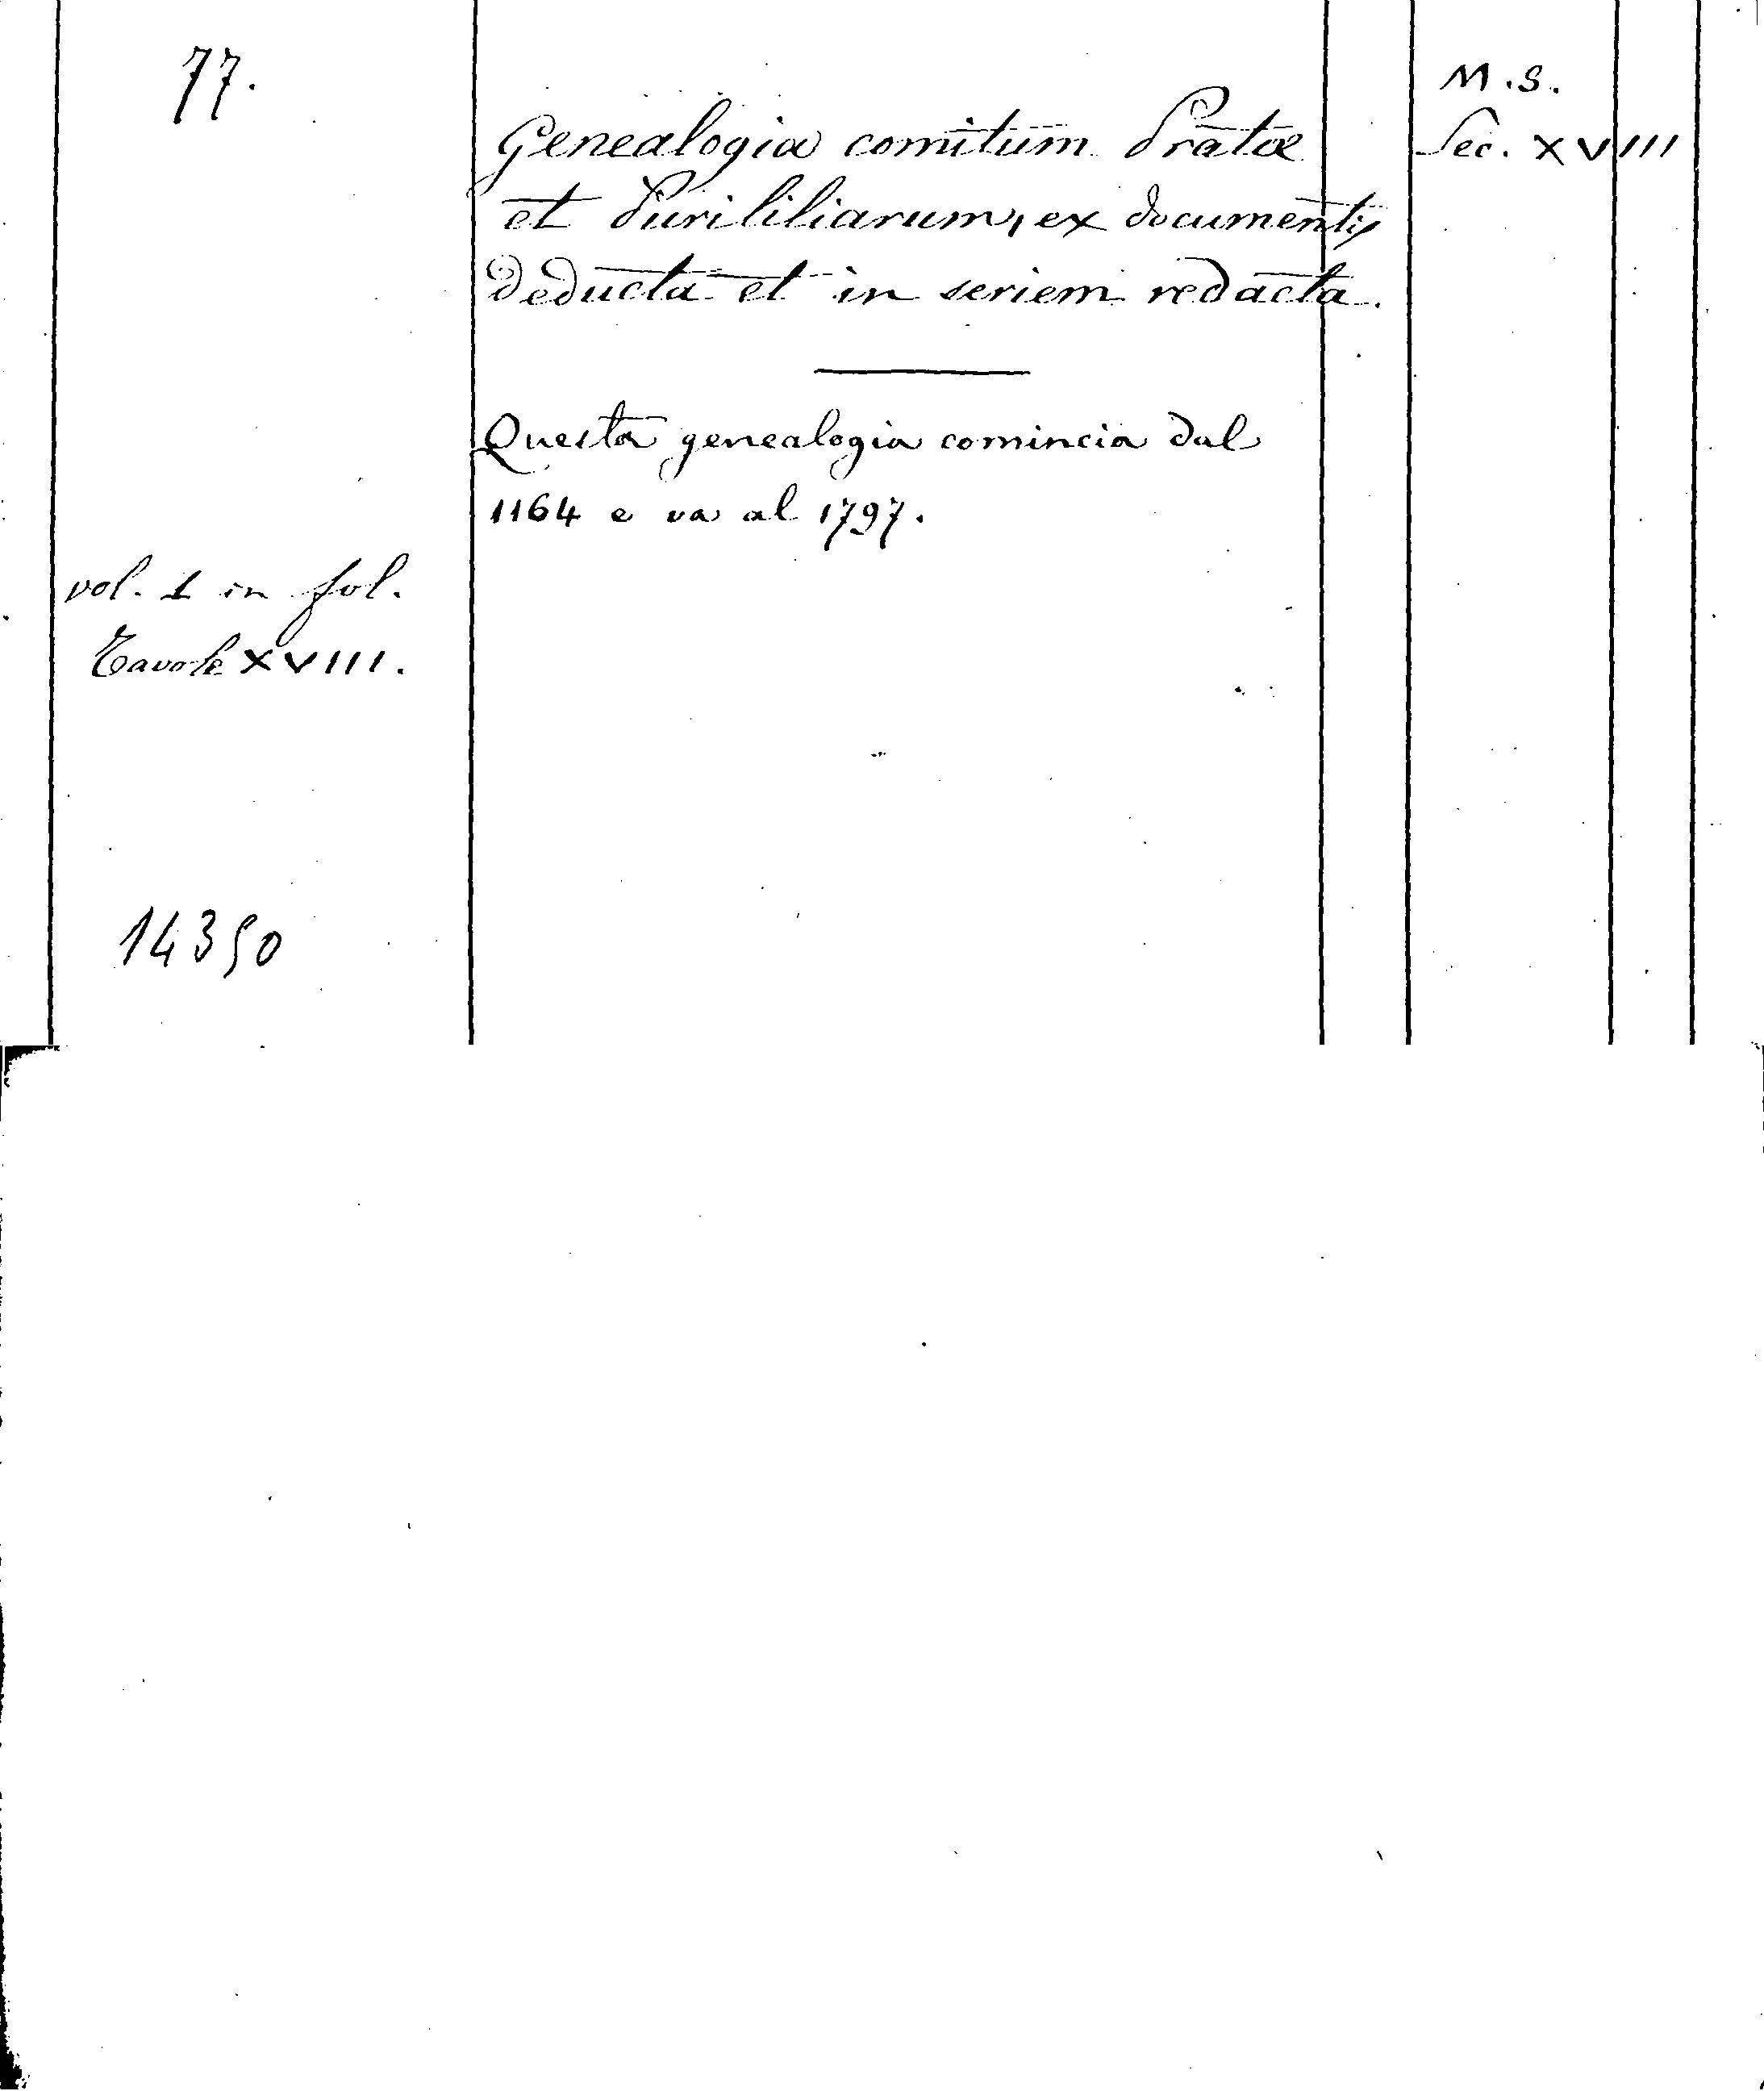 77.
M.S.
Sec. XVIII
Genealogia comitum Pratæ
et Purililiarum, ex documentis
deducta et in seriem redacta.
Questa genealogia comincia dal
1164 e va al 1797.
vol. 1 in fol.
Tavole XVIII.
14350